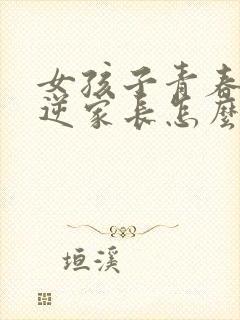 女孩子青春
逆家长怎麼
垣溪